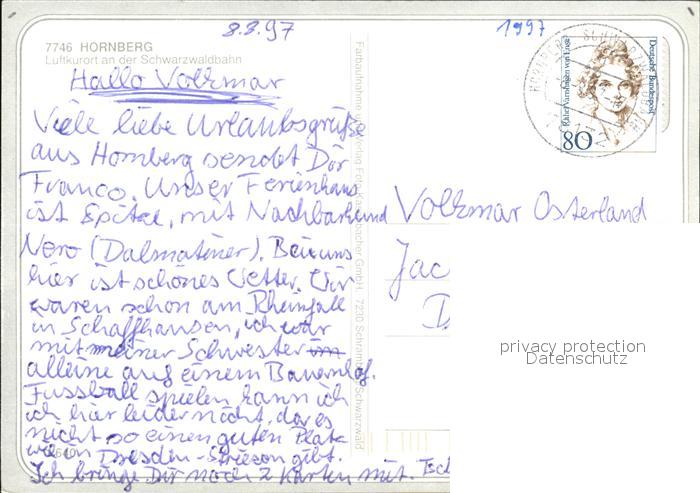 8.8.97
1997
7746 HORNBERG
Luftkurort an der Schwarzwaldbahn
Hallo Volkmar
Viele liebe Urlaubsgrüße
aus Hornberg sendet Dir
Franco. Unser Ferienhaus
ist Spitze, mit Nachbarhund
Nero (Dalmatiner). Bei uns
hier ist schönes Wetter. Wir
waren schon am Rheinfall
in Schaffhausen, ich war
mit meiner Schwester im
alleine auf einem Bauernhof.
Fussball spielen kann ich
ich hier leider nicht, da es
nicht so einen guten Platz
wie in Dresden-Striesen gibt.
Ich bringe Dir noch 2 Karten mit.
Deutsche Bundespost
Rahel Varnhagen von Ense
80
HORNBERG
Volkmar Osterland
Jac
D
privacy protection
Datenschutz